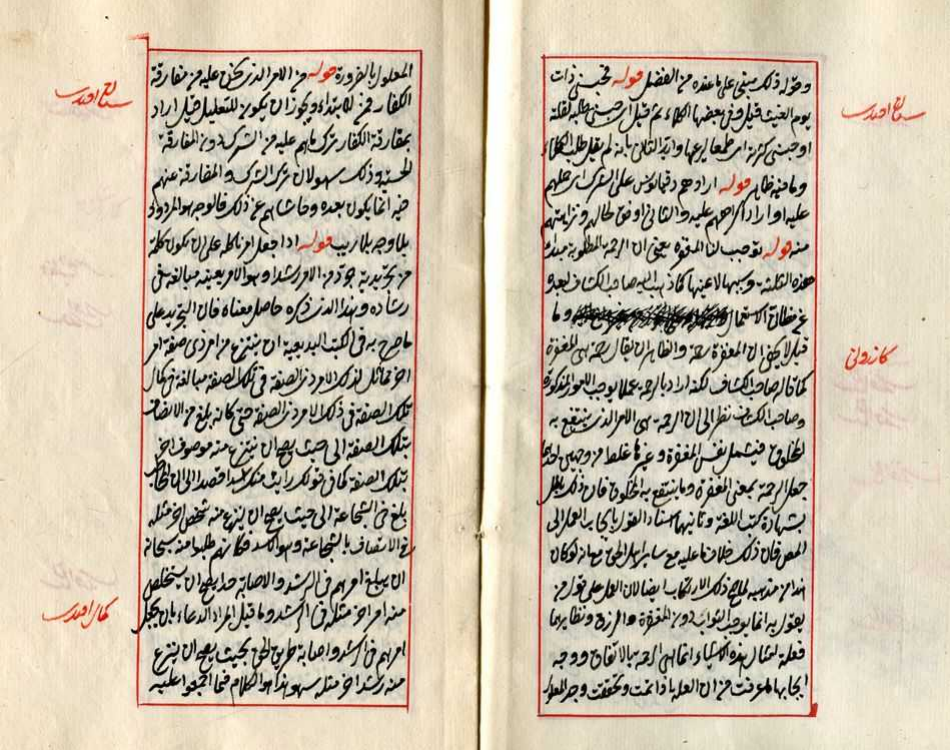 وقوله ذلك مبني على ما عنده من الفضل قوله فحبسني ذات
يوم الغيث قيل وفي بعضها الكلاء ثم قيل اي حبسني طلبه لقلته
او حبسني كثرته اي طمعا لرعيها وايد الثاني بانه لم يقل طلب الكلاء
وما فيه ظاهر قوله ارادهم دقيانوس على الشرك اي حملهم
عليه او اراد اكراههم عليه والثاني اوفق لحالهم ونزاهتهم
منه قوله توجب لنا المغفرة يعني ان الرحمة المطلوبة مبدأ
هذه الثلثة وسببها لا عينها كما ذهب اليه صاحب الكشاف لبعده
عن مظان الاستعمال وما
قيل لا يخفى ان المغفرة رحمة والظاهر ان يقال رحمة هي المغفرة
كما قاله صاحب الكشاف لكنه اراد بالرحمة عملا يوجب الامور المذكورة
وصاحب الكشاف نظر الى ان الرحمة هي الامر الذي ينتفع به
المخلوق فيشمل نفس المغفرة وغيرها غلط من وجهين احدهما
جعل الرحمة بمعنى المغفرة وما ينتفع به المخلوق فان ذلك باطل
بشهادة كتب اللغة وثانيهما اسناد القول بايجاب العمل الى
المص فان ذلك خلاف ما عليه مع سائر اهل الحق مع انه لو كان
هذا من مذهبه لما صح ذلك الارتكاب ايضا لان العمل على قول من
يقول به انما يوجب الثواب دون المغفرة والرزق ونظايرهما
فعلة امثال هذه الاشياء انما هي الرحمة بالاتفاق ووجه
ايجابها لما عرفت من ان العلة اذا تمت وتحققت وجد المعلول
سنان افندي
كازروني
المعلول بالضرورة قوله من الامر الذي نحن عليه من مفارقة
الكفار فمن للابتداء ويجوز ان يكون للتعليل قيل اراد
بمفارقة الكفار ترك ما هم عليه من الشرك دون المفارقة
الحسية وذلك سهو لان ترك الشرك والمفارقة عنهم
فيه انما يكون بعده وحاشاهم عن ذلك فالوجه هو المردود
بلا وجه بلا ريب قوله او اجعل امرنا كله على ان يكون كلمة
من تجريدية جرد من الامر رشدا وهو الامر بعينه مبالغة في
رشاده وهذا الذي ذكره حاصل معناه فان التجريد على
ما صرح به في الكتب البديعية ان ينتزع من امر ذي صفة امر
اخر مماثل لذلك الامر ذي الصفة في تلك الصفة مبالغة في كمال
تلك الصفة في ذلك الامر ذي الصفة حتى كانه بلغ من الاتصاف
بتلك الصفة الى حيث يصح ان ينتزع منه موصوف اخر
بتلك الصفة كما في قولك رايت منك اسدا قصدا الى ان المخاطب
بلغ في الشجاعة الى حيث يصح ان ينتزع منه شخص اخر مثله
في الاتصاف بالشجاعة وهو الاسد فكانهم طلبوا منه سبحانه
ان يبلغ امرهم في الرشد والاصابة حدا يصح ان يستخلص
منه امر اخر مثله في الرشد وما قيل المراد الدعاء بان يجعل
امرهم في الرشد واصابة طريق الحق بحيث يصح ان ينتزع
منه رشد اخر مثله سهو هذا هو الكلام فيما اجمعوا عليه
سنان افندي
كمال افندي